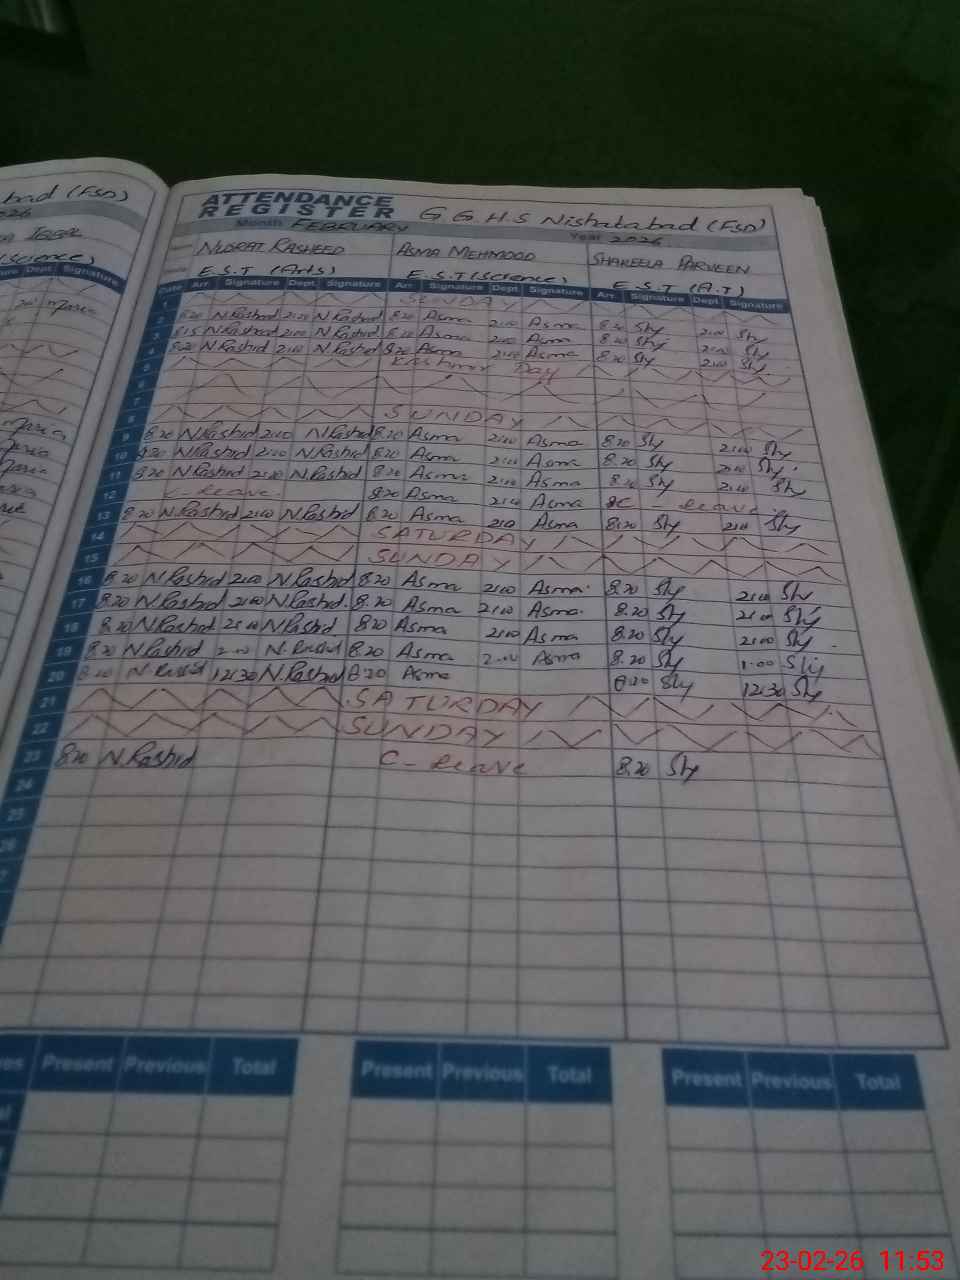 bad (FSD)
ATTENDANCE
REGISTER G.G.H.S Nishatabad (FSD)
Month FEBRUARY Year 2026
NUSRAT RASHEED ASMA MEHMOOD SHAKEELA PARVEEN
E.S.T (Arts) E.S.T (Science) E.S.T (A.T)
Date Arr. Signature Dept. Signature Arr. Signature Dept. Signature Arr. Signature Dept. Signature
1 SUNDAY
2 8.20 N.Rashid 2:00 N.Rashid 8.20 Asma 2:00 Asma 8.20 Shy 2:00 Shy
3 8.15 N.Rashid 2:00 N.Rashid 8.20 Asma 2:00 Asma 8.20 Shy 2:00 Shy
4 8.20 N.Rashid 2:00 N.Rashid 8.20 Asma 2:00 Asma 8.20 Shy 2:00 Shy
5 Kashmir Day
6
7
8 SUNDAY
9 8.20 N.Rashid 2:00 N.Rashid 8.20 Asma 2:00 Asma 8.20 Shy 2:00 Shy
10 8.20 N.Rashid 2:00 N.Rashid 8.20 Asma 2:00 Asma 8.20 Shy 2:00 Shy
11 8.20 N.Rashid 2:00 N.Rashid 8.20 Asma 2:00 Asma 8.20 Shy 2:00 Shy
12 C-leave 8.20 Asma 2:00 Asma C-leave
13 8.20 N.Rashid 2:00 N.Rashid 8.20 Asma 2:00 Asma 8.20 Shy 2:00 Shy
14 SATURDAY
15 SUNDAY
16 8.20 N.Rashid 2:00 N.Rashid 8.20 Asma 2:00 Asma 8.20 Shy 2:00 Shy
17 8.20 N.Rashid 2:00 N.Rashid 8.20 Asma 2:00 Asma 8.20 Shy 2:00 Shy
18 8.20 N.Rashid 2:00 N.Rashid 8.20 Asma 2:00 Asma 8.20 Shy 2:00 Shy
19 8.20 N.Rashid 2:00 N.Rashid 8.20 Asma 2:00 Asma 8.20 Shy 1:00 Shy
20 8.20 N.Rashid 12:30 N.Rashid 8.20 Asma 8.20 Shy 12:30 Shy
21 SATURDAY
22 SUNDAY
23 8.20 N.Rashid C-leave 8.20 Shy
24
25
26
Present Previous Total Present Previous Total Present Previous Total
23-02-26 11:53